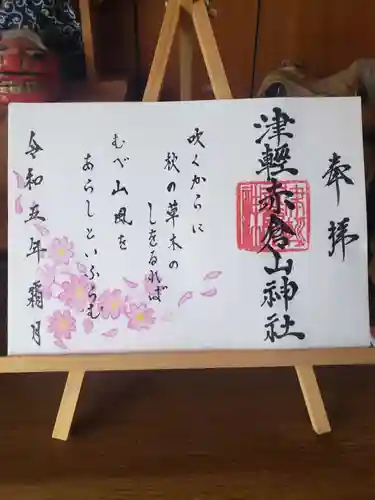 奉拝
津輕赤倉山神社
吹くからに
秋の草木の
しをるれば
むべ山風を
あらしといふらむ
令和五年霜月